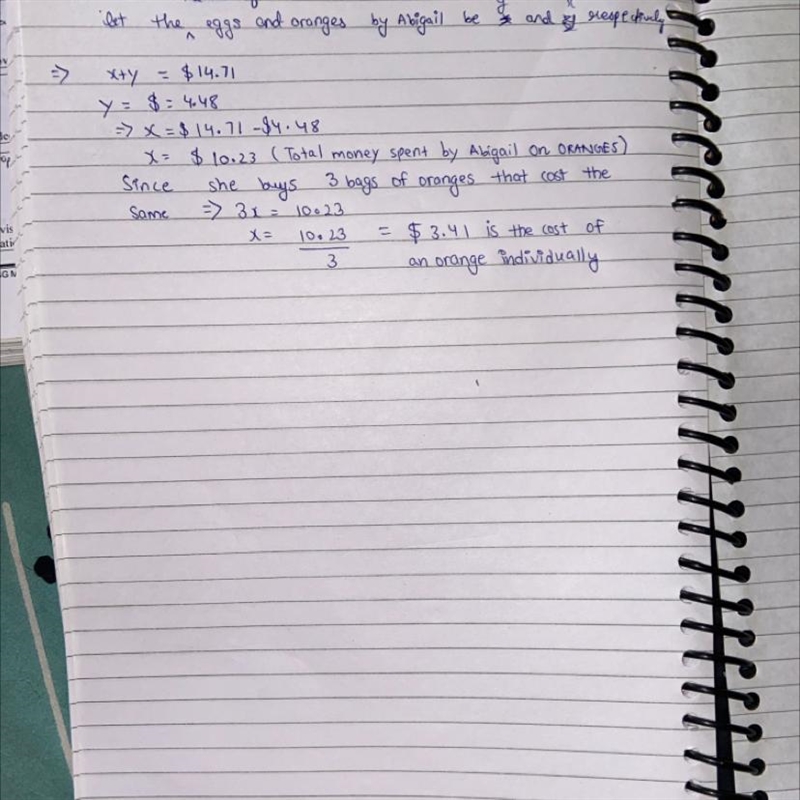 let the eggs and oranges by Abigail be y and x respectively
⇒ x+y = $14.71
y = $ = 4.48
⇒ x = $14.71 - $4.48
x = $ 10.23 (Total money spent by Abigail on ORANGES)
Since she buys 3 bags of oranges that cost the
Same ⇒ 3x = 10.23
x = 10.23 / 3 = $ 3.41 is the cost of
an orange individually
vis
GN